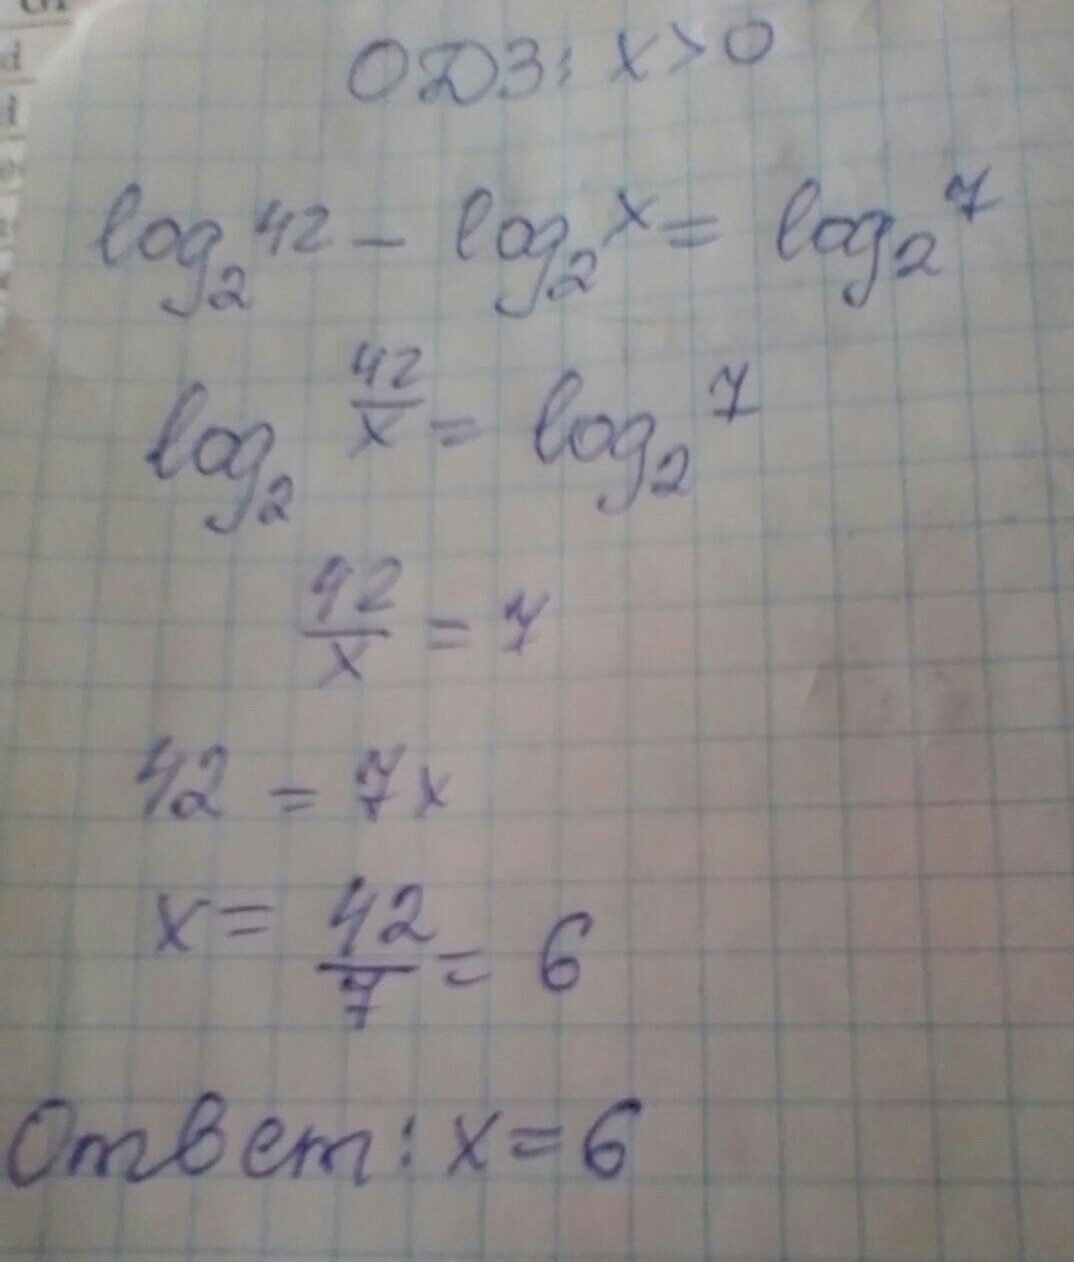 ОДЗ: x>0
log₂ 42 - log₂ x = log₂ 7
log₂ 42/x = log₂ 7
42/x = 7
42 = 7x
x = 42/7 = 6
Ответ: x=6